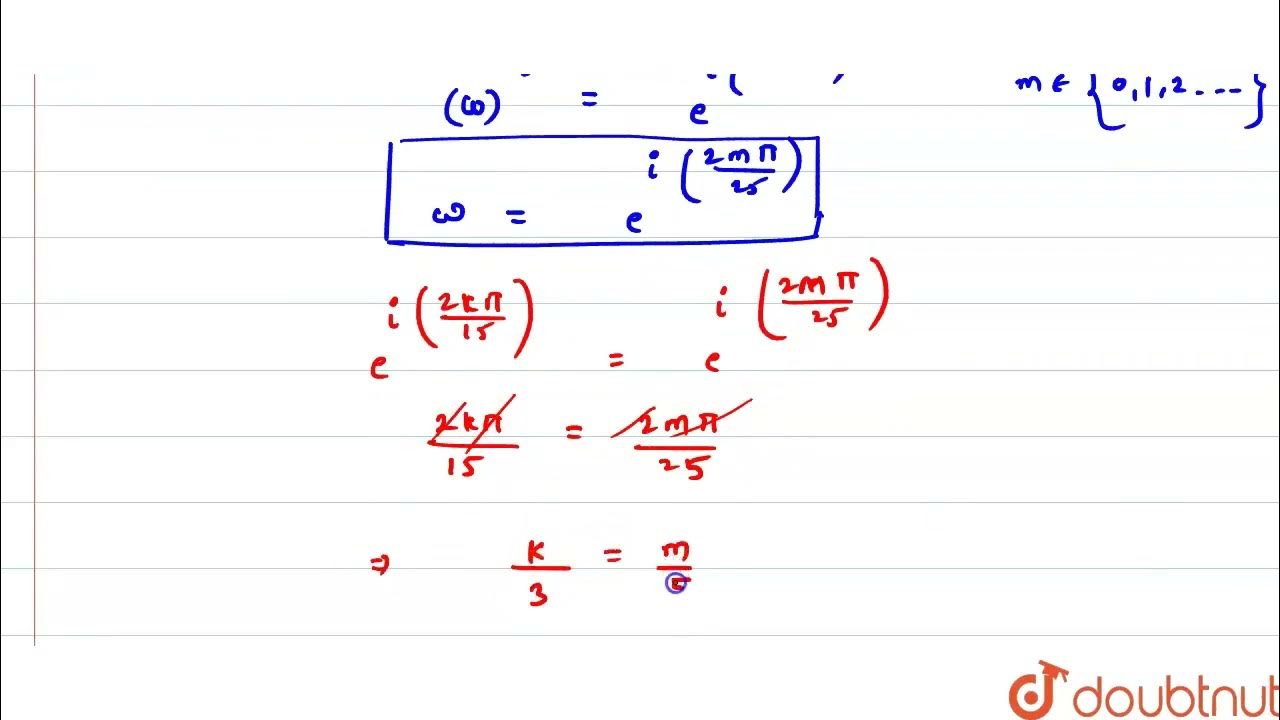 (ω) = e^{i(
m ∈ {0, 1, 2 - - - -}
ω = e^{i(2mπ/25)}
e^{i(2kπ/15)} = e^{i(2mπ/25)}
2kπ/15 = 2mπ/25
⇒ k/3 = m/5
doubtnut